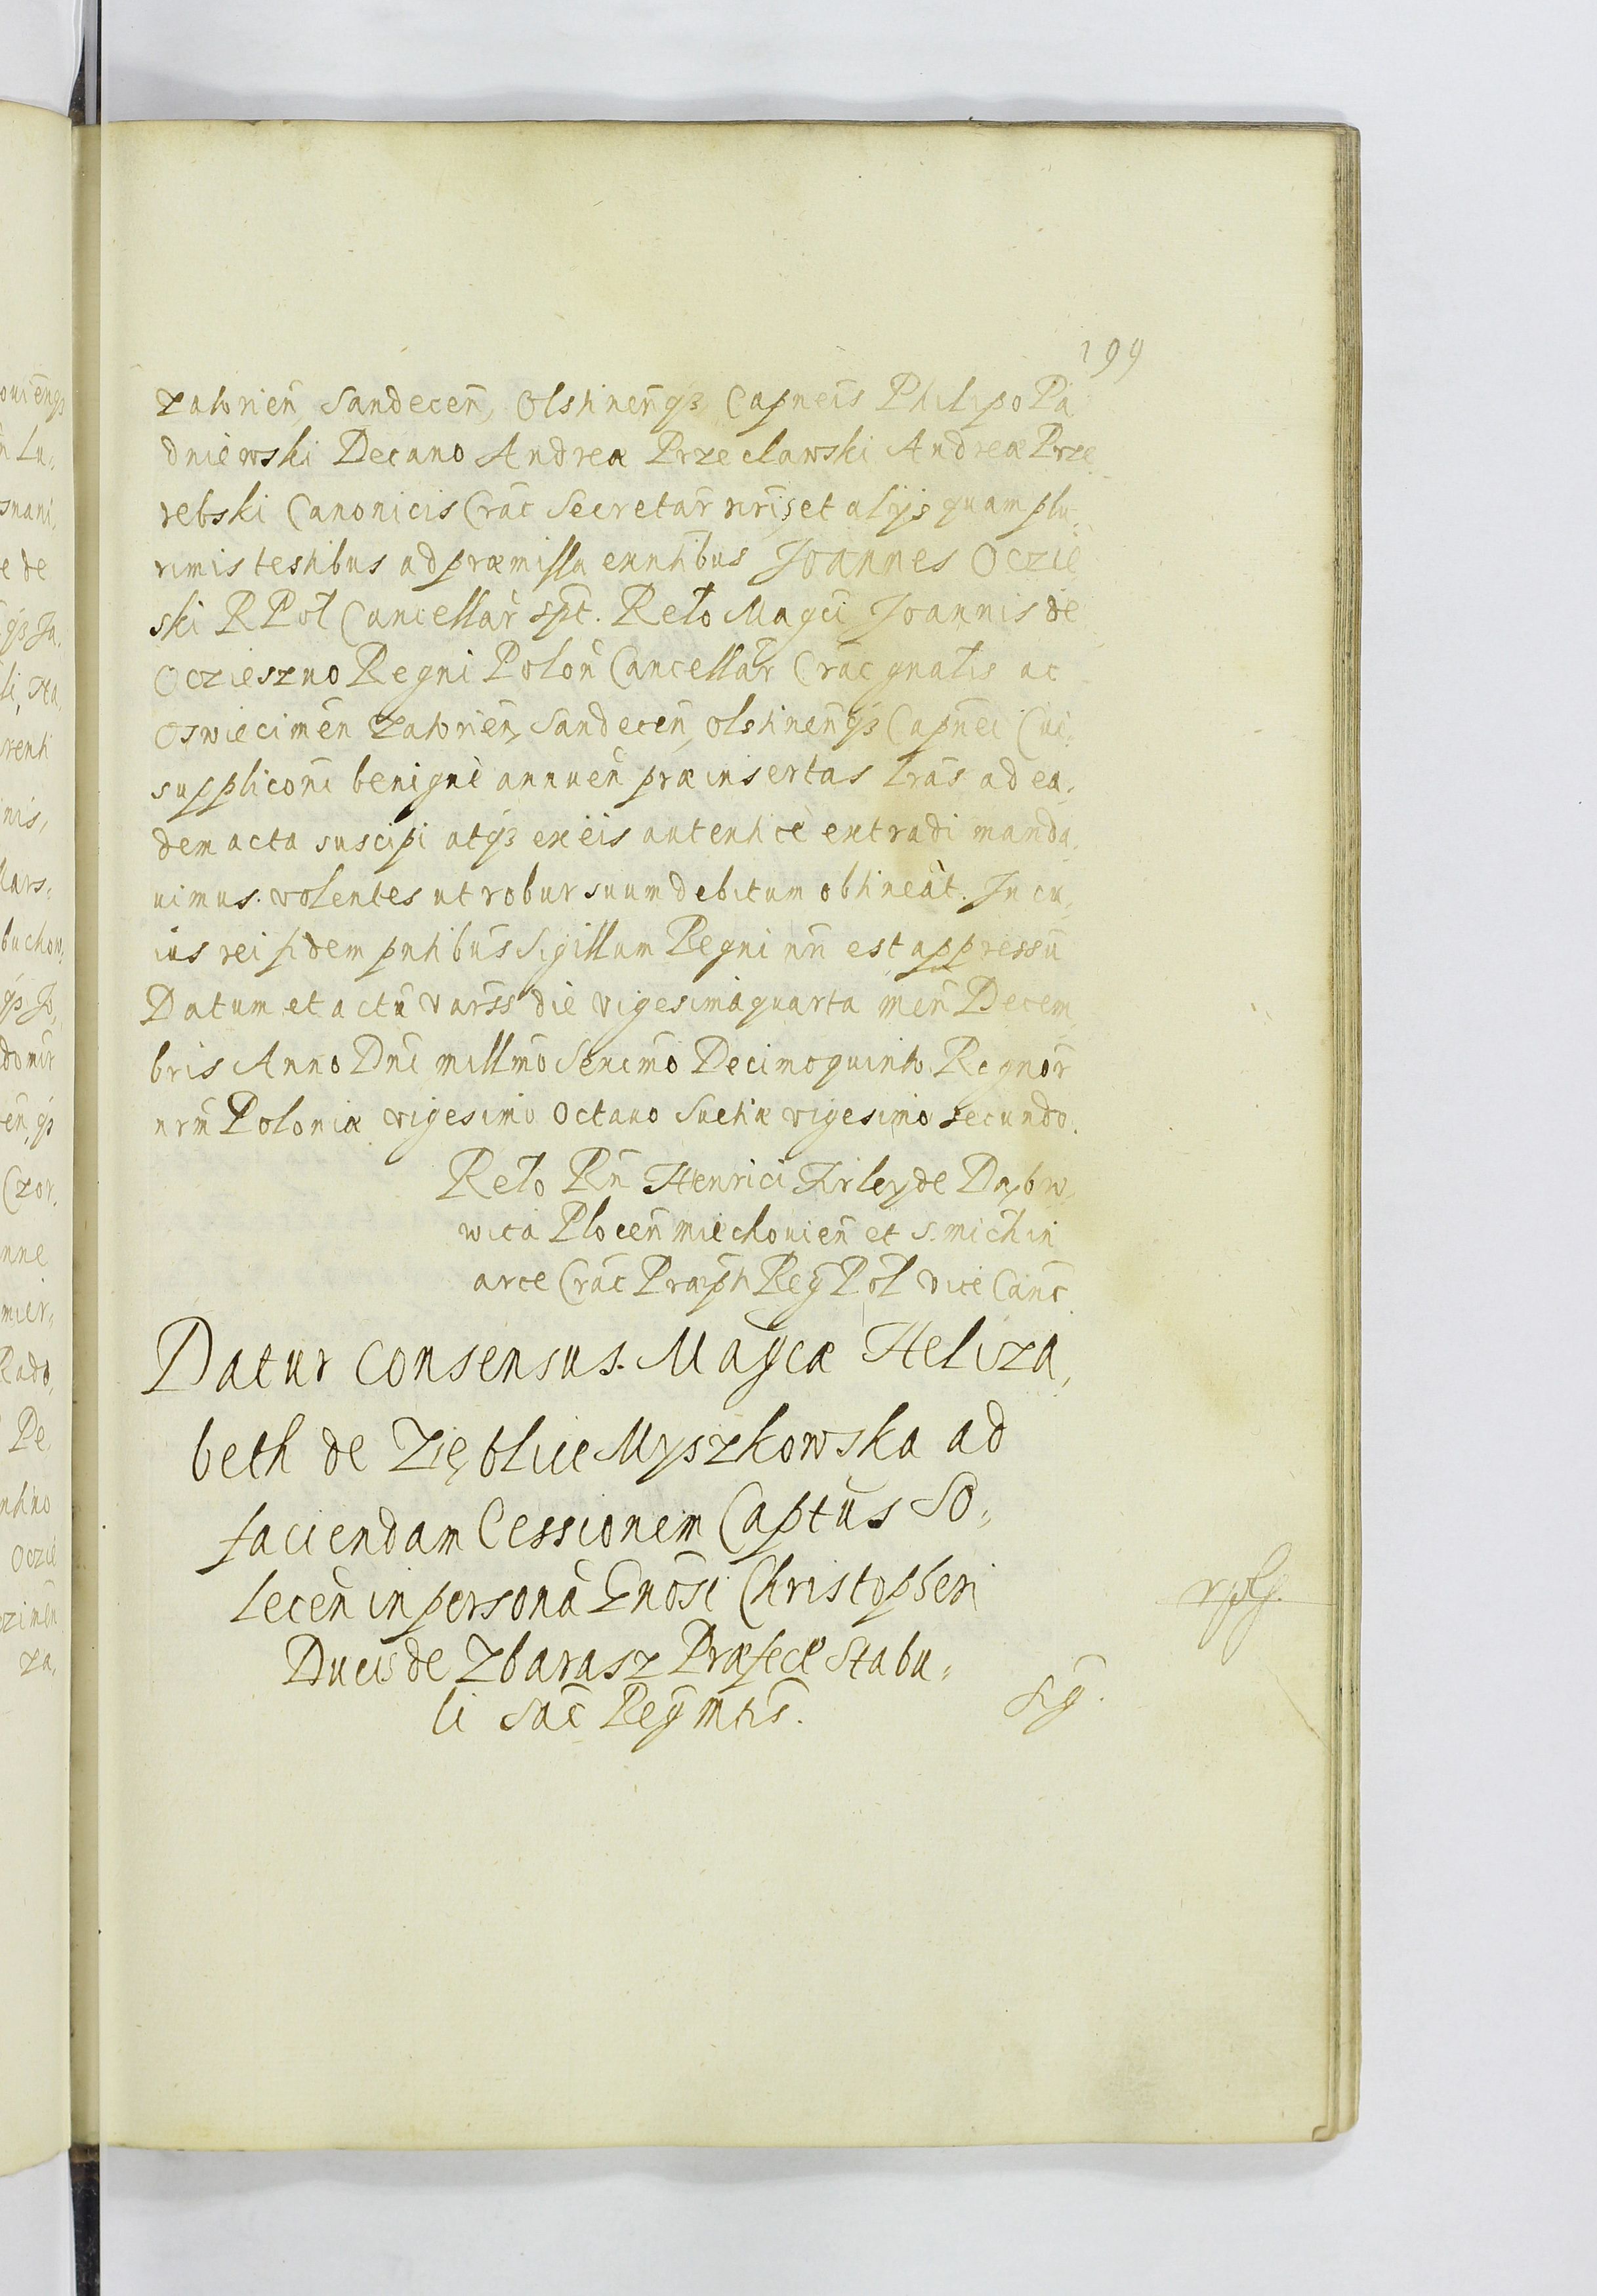 199
zatorien̄, Sandecen̄, Olstinen̄qȝ Capneis Philipo Pa
dniewski Decano Andrea Przeclawski Andreæ Prze
rebski Canonicis Crac̄ Secretar̄ nr̄is et alijs quamplu,
rimis testibus ad præmissa euntibus Joannes Oczie
ski R Pol Cancellar̄ spt̄. Relō Magci Joannis de
Oczieszno Regni Polon̄ Cancellar̄ Crac̄ gnalis ac
Oswiecimen̄ zatorien̄, Sandecen̄, Olstinen̄qȝ Capnei Cui,
suppliconi benigne annuen̄ præinsertas Lrās ad ea,
dem acta suscipi atqȝ ex eis autentice extradi manda,
uimus. volentes ut robur suum debitum obtineāt. In cu,
ius rei fidem pntibus Sigillum Regni nr̄i est appressū
Datum et actū Varss̄ die vigesima quarta men̄ Decem
bris Anno Dnī millmo Sexcmo Decimoquinto. Regnor̄
nrm̄ Poloniæ vigesimo Octauo Suetiæ vigesimo secundo.
Relō Rn̄ Henrici Firley de Dąbro,
wica Plocen̄ miechouien̄ et S. mich in
arce Crac̄ Præpti Reḡ Pol vice Canc̄
Datur consensus. Magcæ Heliza,
beth de Zięblice Myszkowska ad
faciendam Cessionem Captus So,
lecen̄ in personā Gnosi Christopheri
Ducis de Zbarasz Præfecti Stabu,
li Sac̄ Reḡ mtis.
Siḡ.